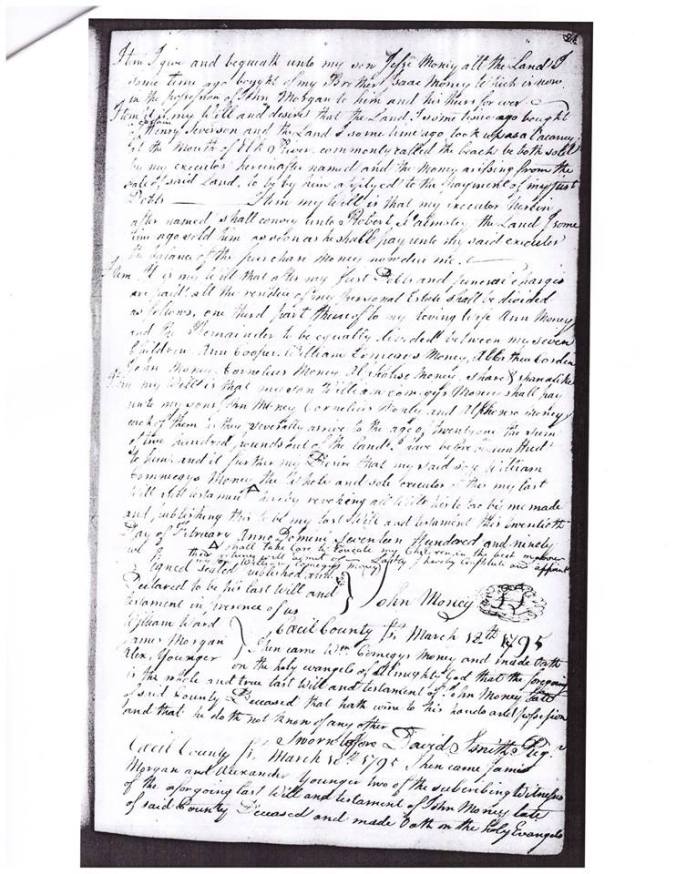 Item I give and bequeath unto my son Jesse Money all the Land I
some time ago bought of my Brother Isaac Money Which is now
in the possession of John Morgan to him and his heirs for ever
Item it is my Will and desire that the Land I some time ago bought
of certain Henry Severson and the Land I some time ago took up as a Vacancy
at the Mouth of Elk River commonly called the beach be both sold
by my executor hereinafter named and the Money arissing from the
sale of said Land, to by by him applyed to the payment of my just
Debts Item my Will is that my executor herein
after named shall convey unto Robert the Land I some
time ago sold him as soon as he shall pay unto my said executor
the balance of the purchase Money now due me
Item It is my Will that after my Just Debts and funeral charges
are paid all the residue of my Personal Estate shall be divided
as follows, one third part thereof to my loving Wife Ann Money
and the Remainder to be equally divided between my seven
Children Ann Cooper William Comegys Money,
John Money Cornelius Money Alphonse Money, share & share alike
Item my Will is that my son William Comegys Money shall pay
unto my sons John Money Cornelius Money and Alphonso Money
each of them as they severally arrive to the age of twentyone the sum
of two hundred pounds out of the lands I have before
to him and it further my Desire that my said son William
Comegys Money the Whole and sole executor of this my last
Will & Testament hereby revoking all Wills heretoo by me made
and publishing this to be my last Will and testament this twentieth
Day of February Anno Domini Seventeen Hundred and ninety
shall take care to Educate my Children in the best manner
William Comegys Money I hereby constitute and appoint
Signed sealed published and
Declared to be his last Will and
testament in presence of us
John Money
William Ward
James Morgan
Alex. Younger
Cecil County fs. March 12th 1795
Then came Wm Comegys Money and made Oath
on the holy evangels of Almighty God that the foregoing
is the whole and true last Will and testament of John Money late
of said County Deceased that hath come to his hands and possession
and that he doth not know of any other
Sworn before David Smith Reg.
Cecil County fs. March 1795 Then came James
Morgan and Alexander Younger two of the subscribing Witnesses
of the aforgoing last Will and testament of John Money late
of said County Deceased and made Oath on the Holy Evangels